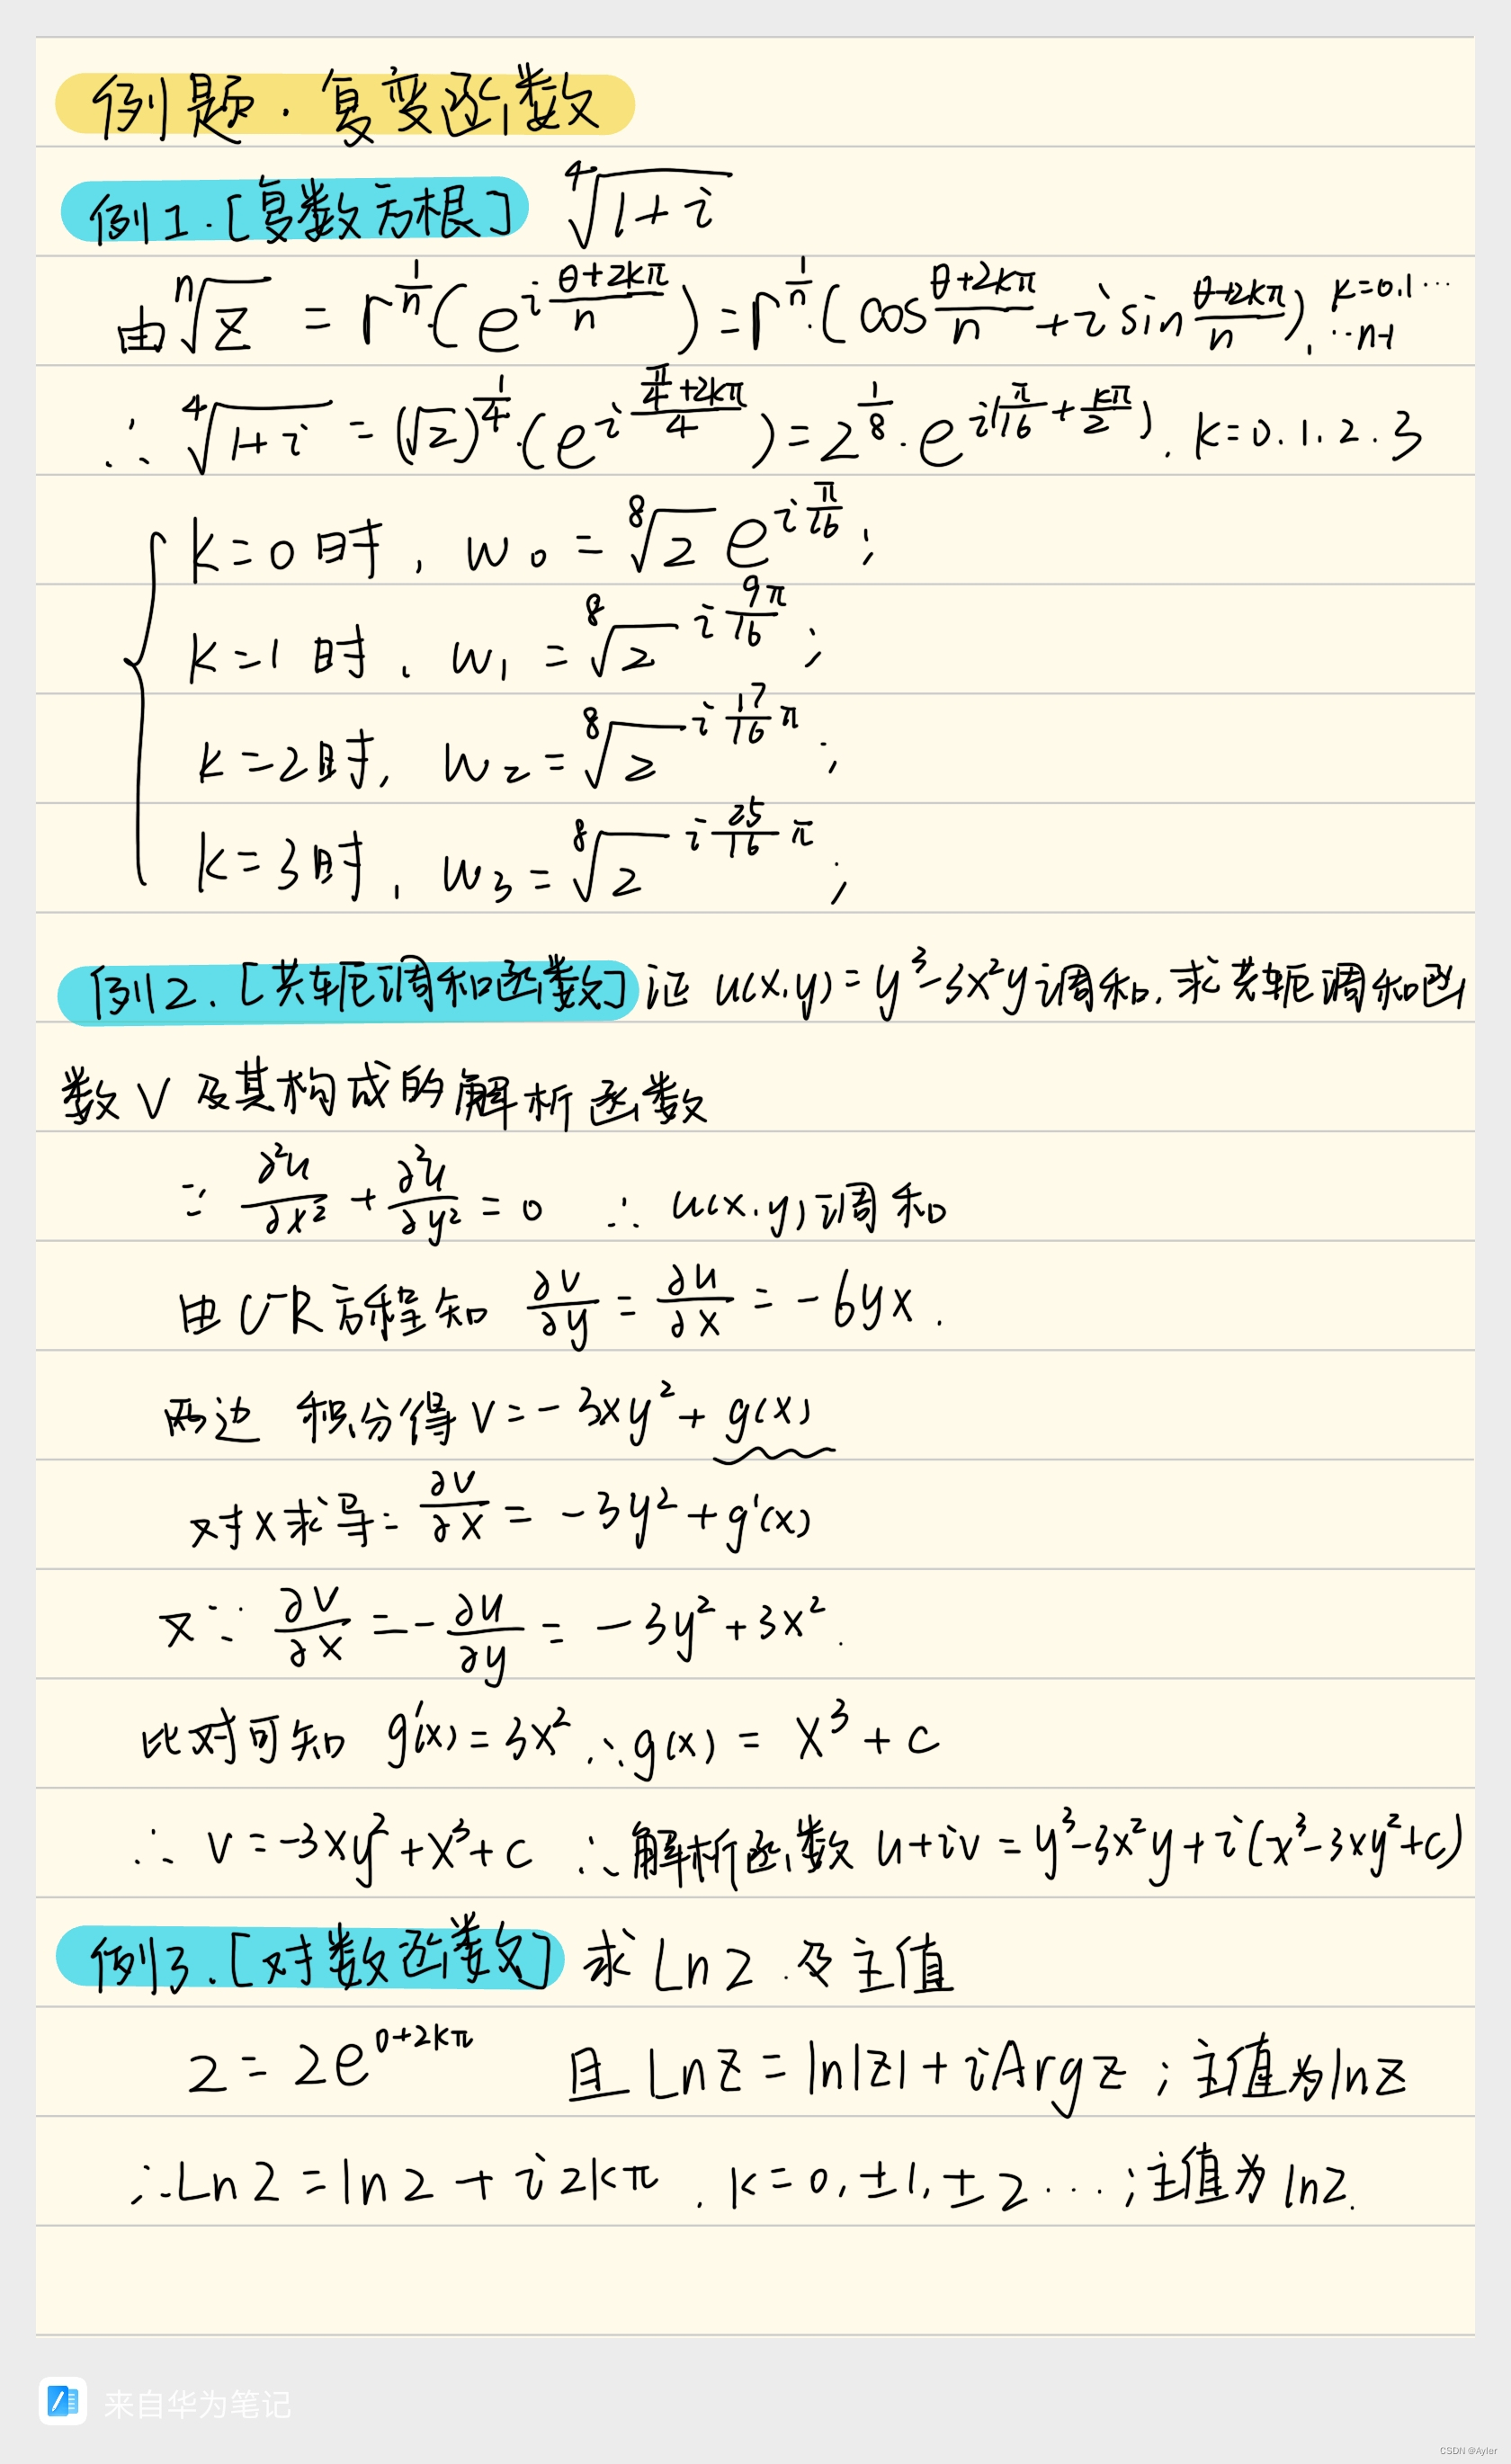 例题.复变函数
例1.[复数方根] ⁴√(1+i)
由 ⁿ√z = r^(1/n)·(e^(i(θ+2kπ)/n)) = r^(1/n)·(cos (θ+2kπ)/n + i sin (θ+2kπ)/n), k=0,1⋯⋯n-1
∴ ⁴√(1+i) = (√2)^(1/4)·(e^(i(π/4+2kπ)/4)) = 2^(1/8)·e^(i(π/16+kπ/2)). k=0.1.2.3
k=0时, w₀ = ⁸√2 e^(iπ/16);
k=1时, w₁ = ⁸√2^(i9π/16);
k=2时, w₂ = ⁸√2^(i(17/16)π);
k=3时, w₃ = ⁸√2^(i(25/16)π);
例2.[共轭调和函数] 证 u(x,y)=y³-3x²y调和,求共轭调和函
数V及其构成的解析函数
∵ ∂²u/∂x² + ∂²u/∂y² = 0 ∴ u(x,y)调和
由C-R方程知 ∂v/∂y = ∂u/∂x = -6yx.
两边 积分得 v=-3xy²+g(x)
对x求导: ∂v/∂x = -3y²+g'(x)
又∵ ∂v/∂x = -∂u/∂y = -3y²+3x².
比对可知 g'(x)=3x² ∴g(x) = x³+c
∴ v=-3xy²+x³+c ∴解析函数 u+iv=y³-3x²y+i(x³-3xy²+c)
例3.[对数函数] 求Ln2.及主值
2=2e^(0+2kπ) 且 Lnz=ln|z|+iArgz;主值为lnz
∴Ln2=ln2+i2kπ. k=0,±1,±2⋯;主值为ln2.
来自华为笔记
CSDN @Ayler